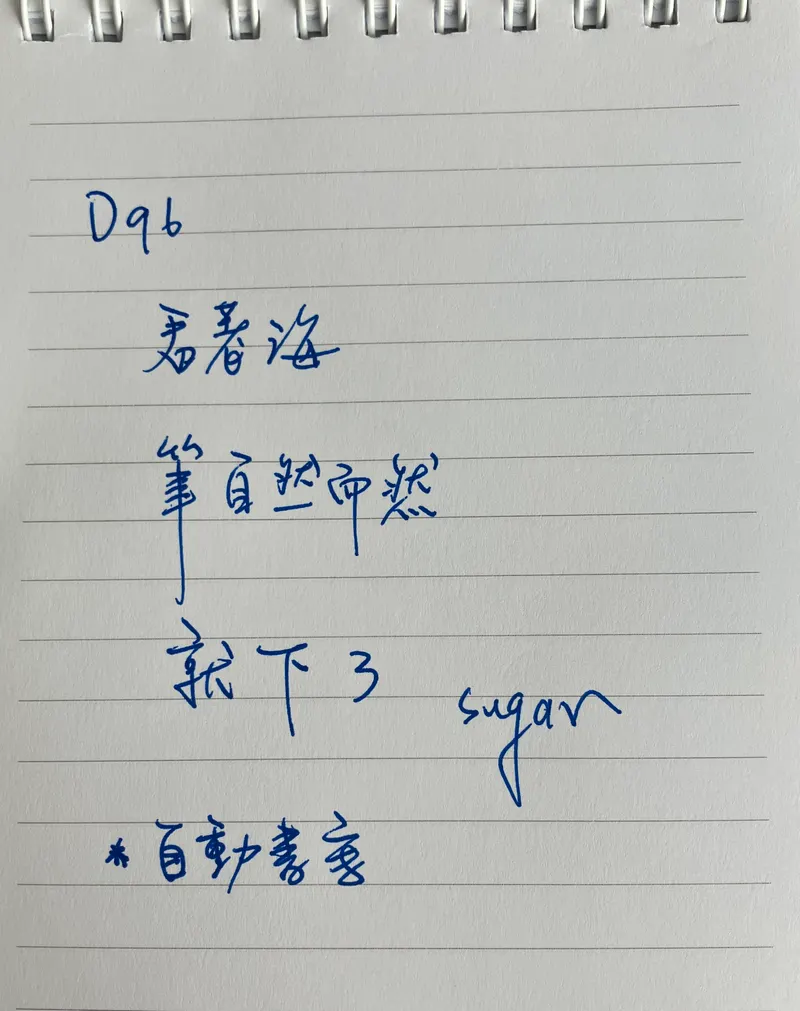 D96
看著海
筆自然而然
就下了
sugar
*自動書寫